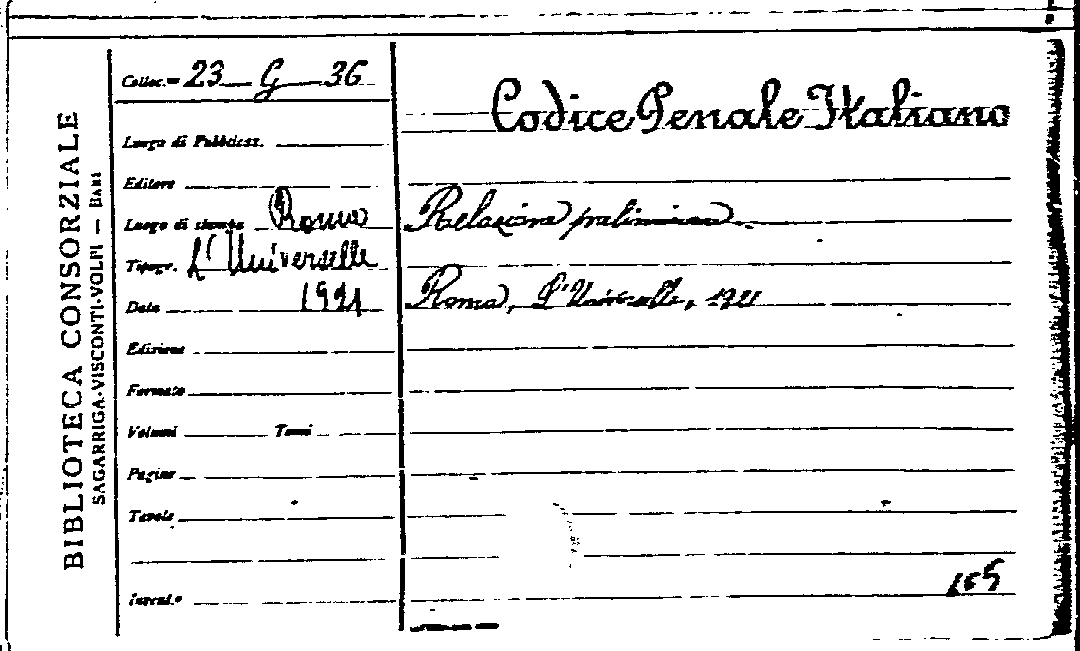 BIBLIOTECA CONSORZIALE
SAGARRIGA-VISCONTI-VOLPI — BARI
Colloc.ne 23 G 36
Luogo di Pubblicaz.
Editore
Luogo di stampa Roma
Tipogr. L'Universelle
Data 1921
Edizione
Formato
Volumi Tomi
Pagine
Tavole
Invent.o
Codice Penale Italiano
Relazione preliminare.
Roma, L'Universelle, 1921
165